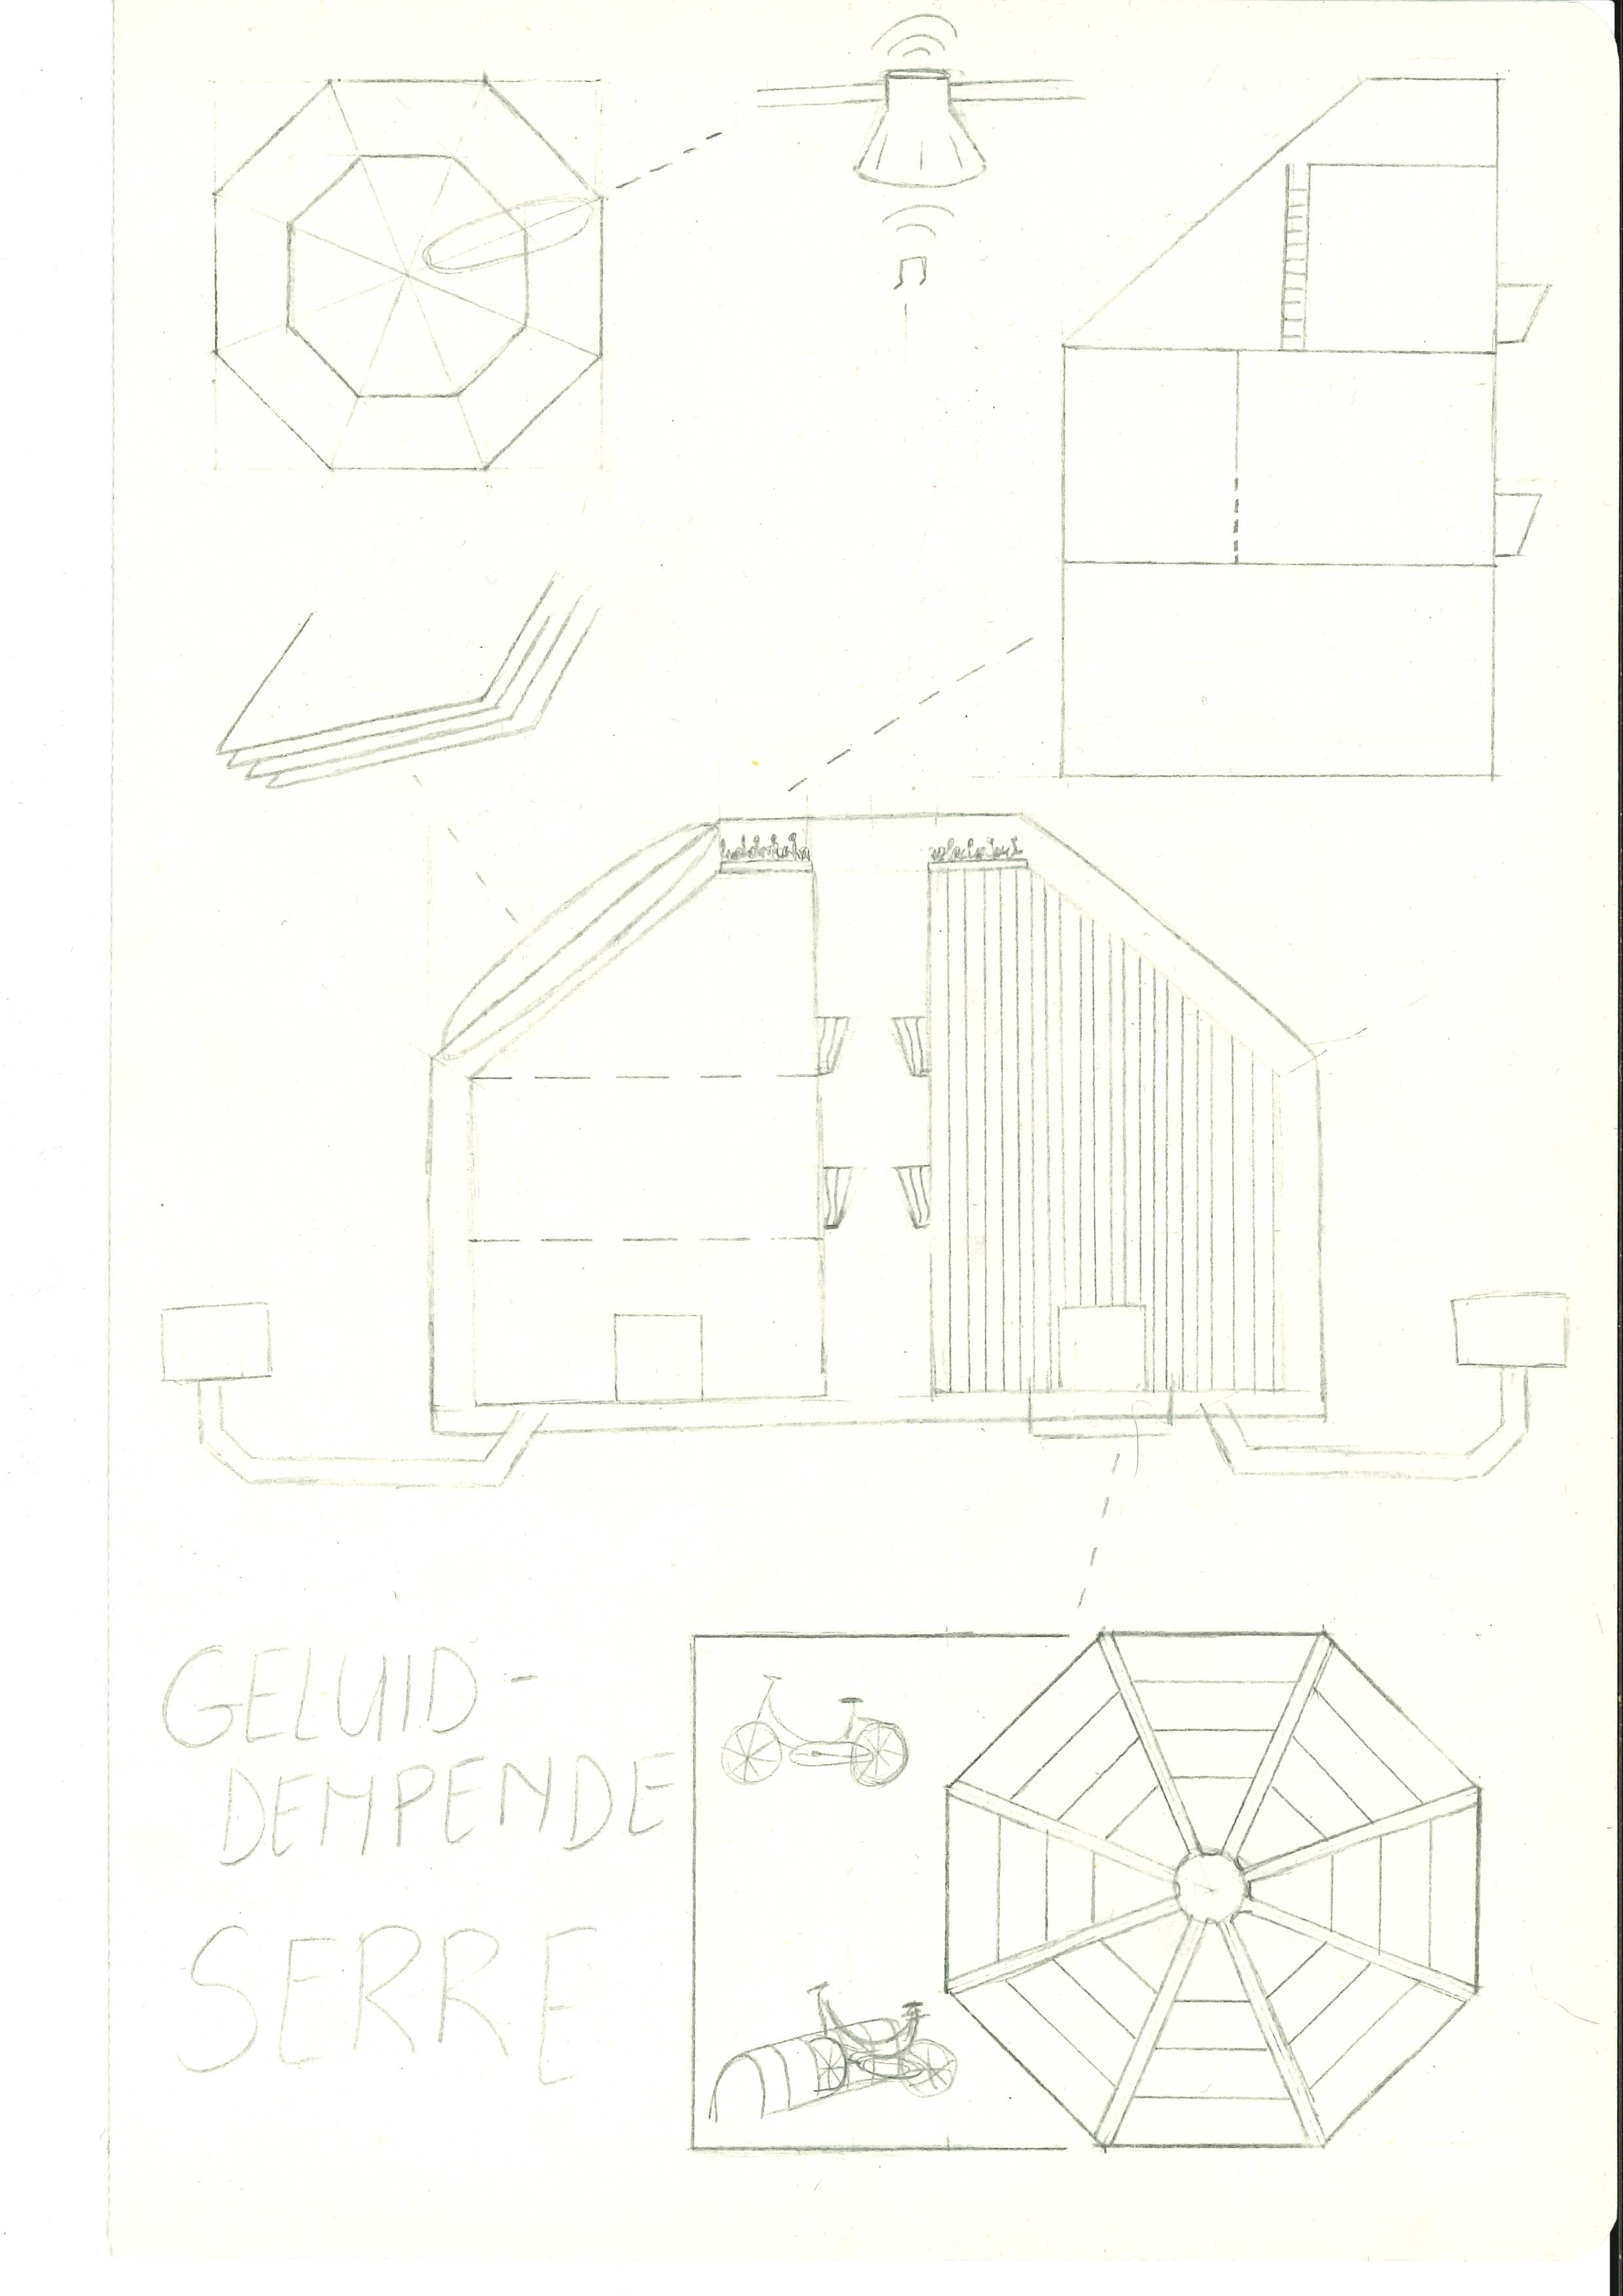 GELUID-
DEMPENDE
SERRE